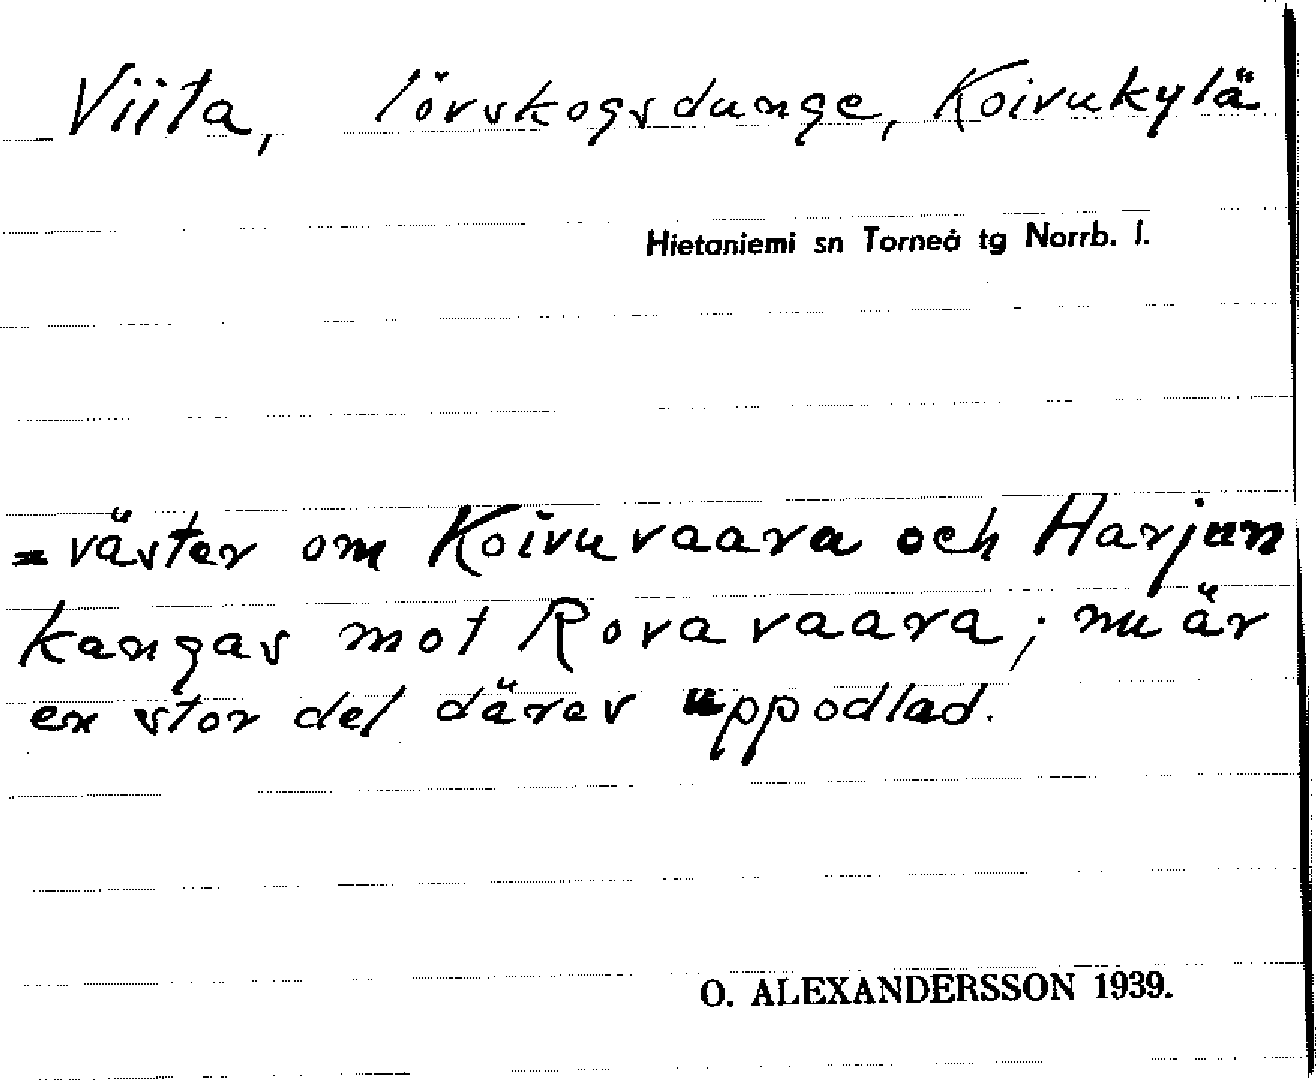 Viita, lövskogsdunge, Koivukylä
Hietaniemi sn Torneå tg Norrb. l.
= väster om Koivuvaara och Harjun
kangas mot Rovavaara; nu är
en stor del därav uppodlad.
O. ALEXANDERSSON 1939.